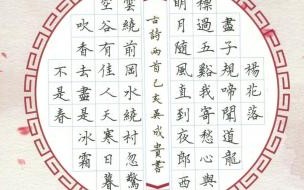 楊花落
盡子規啼聞道龍
標過五谿我寄愁心與
明月隨風直到夜郎西
古詩兩首乙亥吳成貴書
雲繞前岡水繞村忽驚
空谷有佳人天寒日暮
吹春去盡是冰霜
不是春